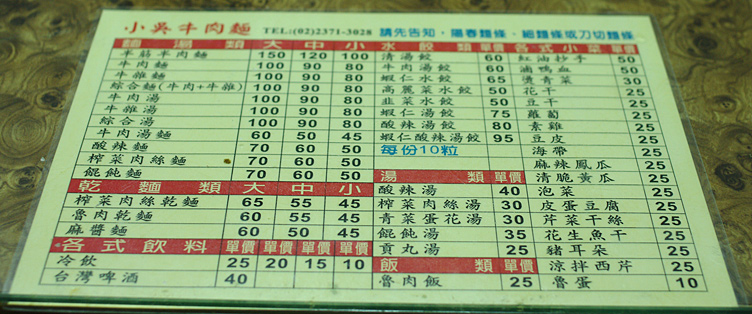 小吳牛肉麵 TEL:(02)2371-3028 請先告知，陽春麵條、細麵條或刀切麵條
麵湯類 大 中 小
牛筋牛肉麵 150 120 100
牛肉麵 100 90 80
牛雜麵 100 90 80
綜合麵(牛肉+牛雜) 100 90 80
牛肉湯 100 90 80
牛雜湯 100 90 80
綜合湯 100 90 80
牛肉湯麵 60 50 45
酸辣麵 70 60 50
榨菜肉絲麵 70 60 50
餛飩麵 70 60 50
乾麵類 大 中 小
榨菜肉絲乾麵 65 55 45
魯肉乾麵 60 55 45
麻醬麵 60 50 45
各式飲料 單價 單價 單價 單價
冷飲 25 20 15 10
台灣啤酒 40
水餃類 單價
清湯餃 60
牛肉湯餃 80
蝦仁水餃 65
高麗菜水餃 50
韭菜水餃 50
蝦仁湯餃 75
酸辣湯餃 80
蝦仁酸辣湯餃 95
每份10粒
湯類 單價
酸辣湯 40
榨菜肉絲湯 30
青菜蛋花湯 30
餛飩湯 35
貢丸湯 25
飯類 單價
魯肉飯 25
各式小菜 單價
紅油抄手 50
滷鴨血 50
燙青菜 30
花干 25
豆干 25
蘿蔔 25
素雞 25
豆皮 25
海帶 25
麻辣鳳瓜 25
清脆黃瓜 25
泡菜 25
皮蛋豆腐 25
芹菜干絲 25
花生魚干 25
豬耳朵 25
涼拌西芹 25
魯蛋 10